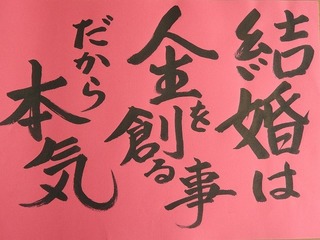 結婚は
人生を創る事
だから
本気